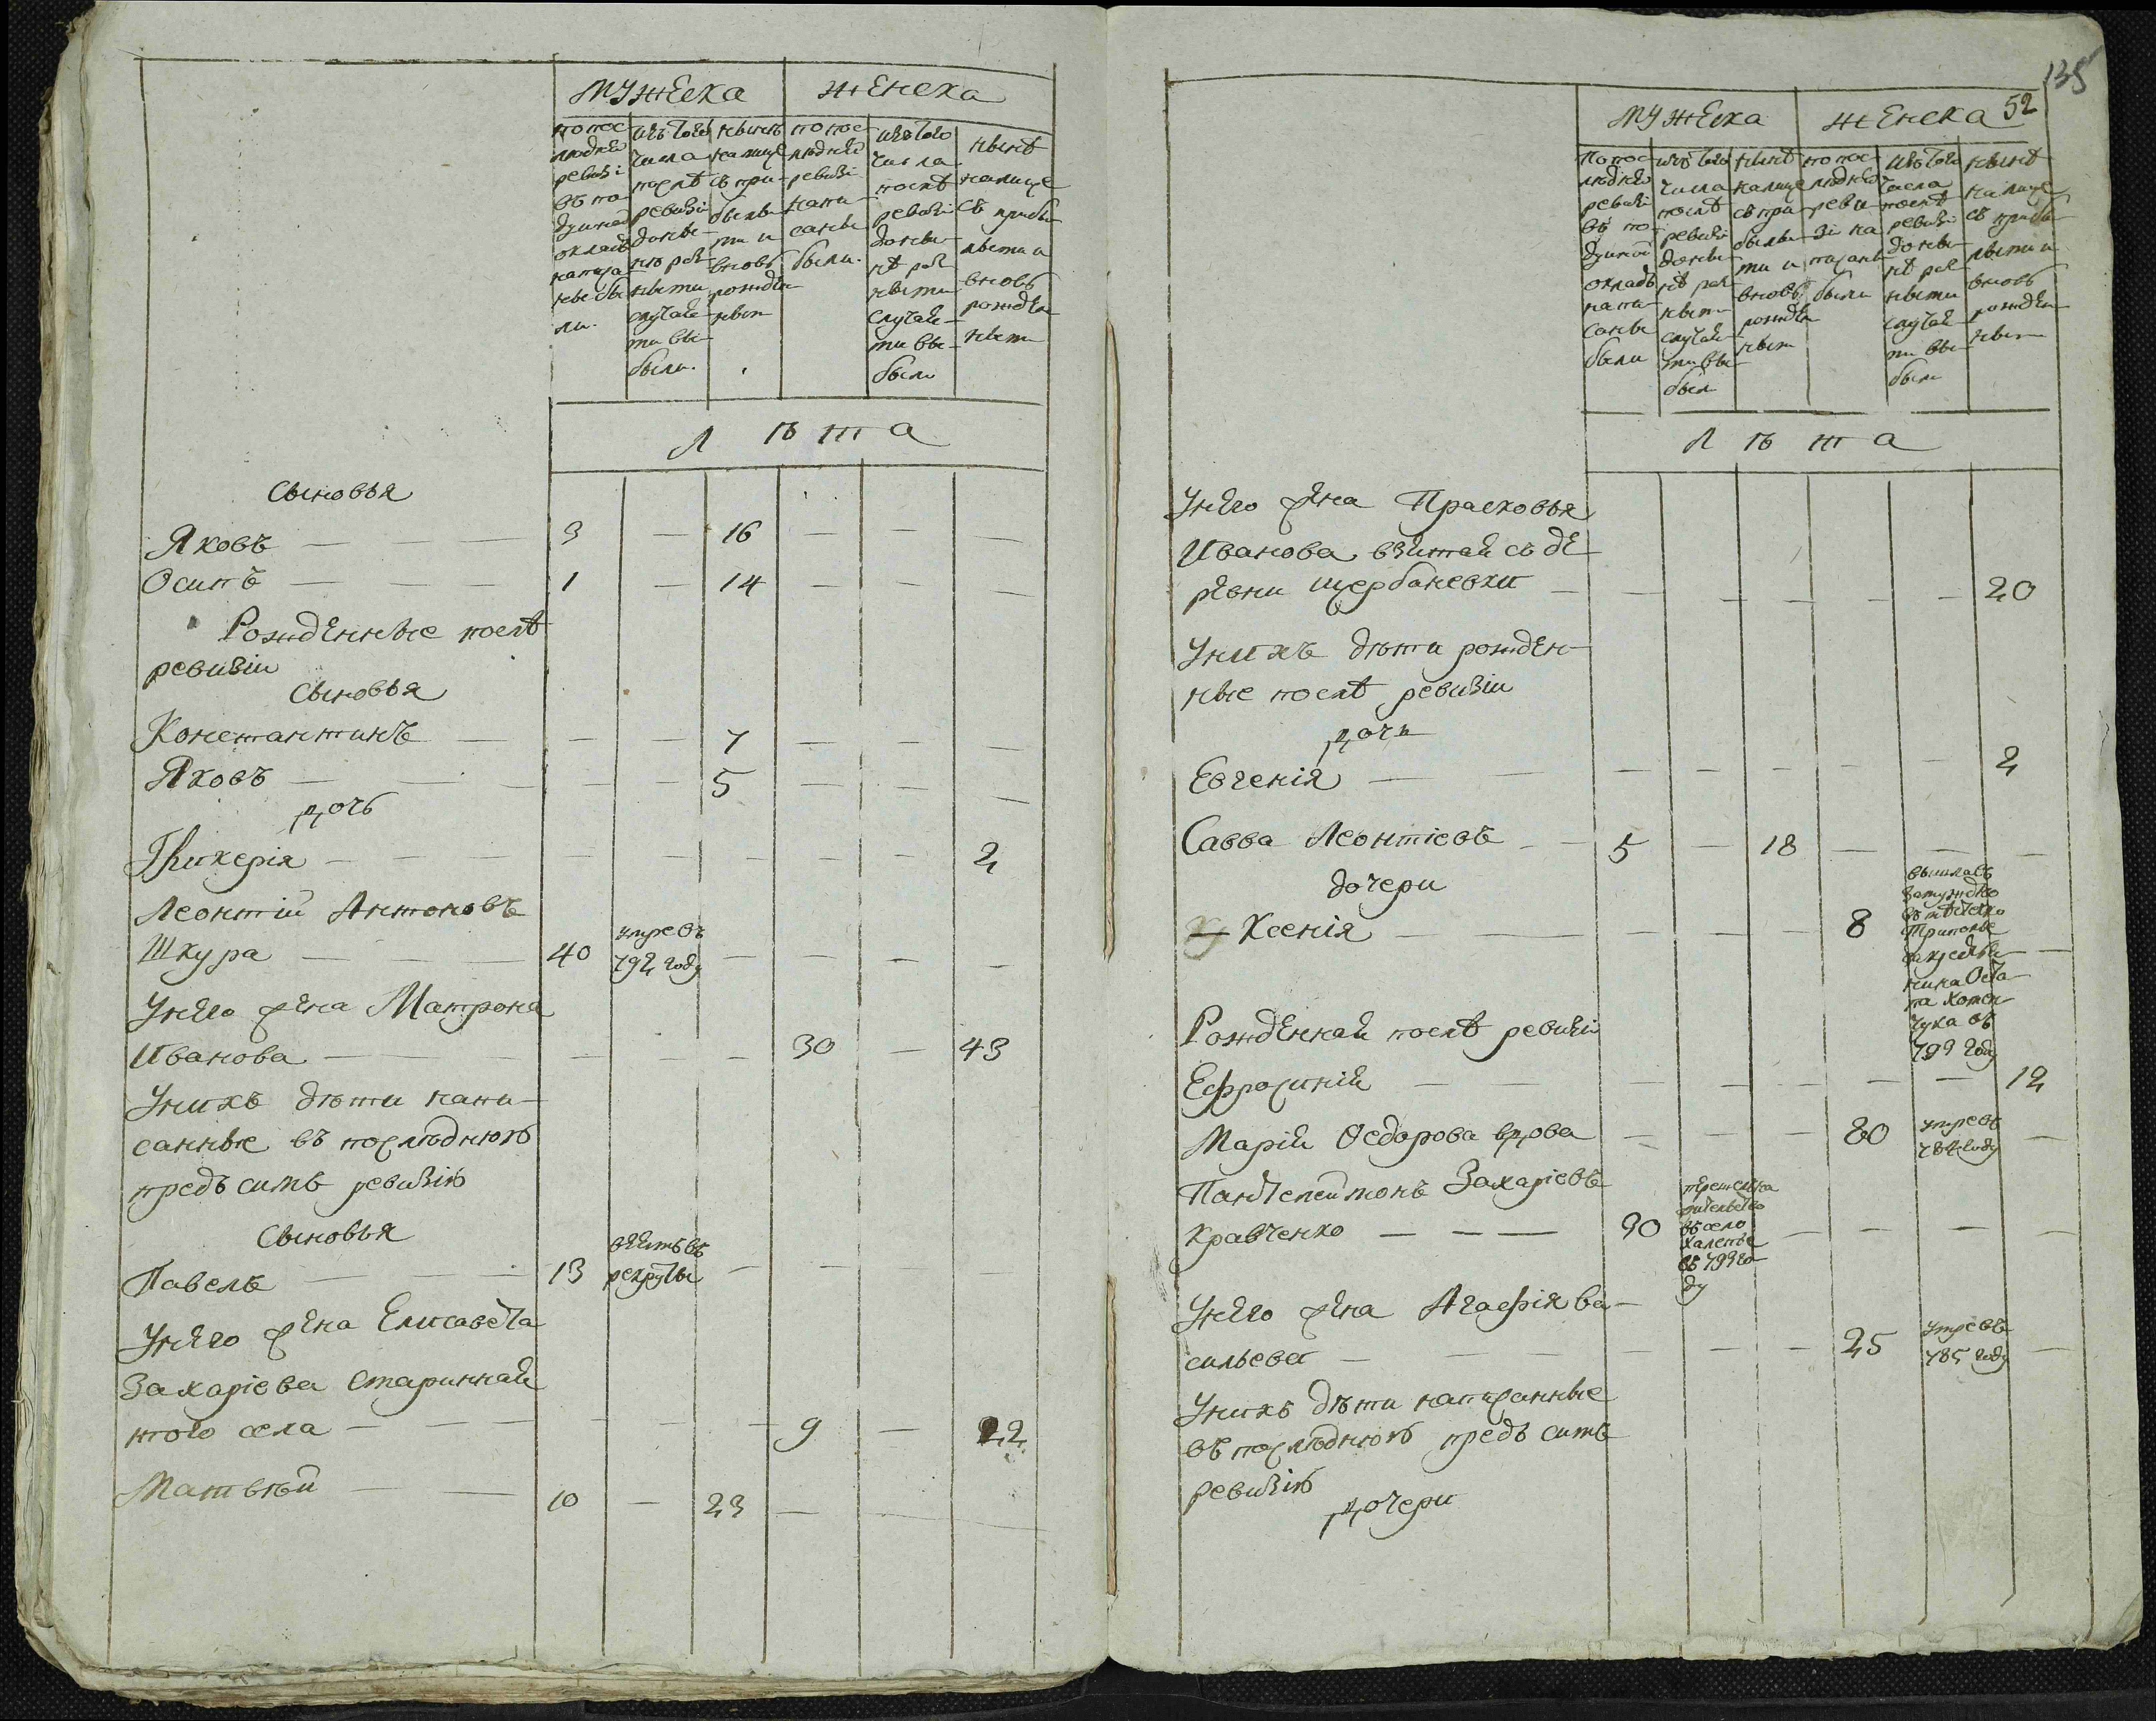 мужеска
женска
по пос-
людней
ревизі
въ по
душной
окладъ
написа
ны бы
ли.
изъ того
числа
послѣ
ревизіи
до ны-
нѣ раз
ными
случая-
ми вы-
были.
нынѣ
на лице
съ при-
былы-
ми и
вновь
рожден
ным
по пос-
людней
ревизі
напи-
саны
были.
изъ того
числа
послѣ
ревизі
до ны-
нѣ раз
ными
случая-
ми вы-
были
нынѣ
на лице
съ прибы
лыми и
вновь
рожден
ными
лѣта
Сыновья
Яковъ — — — 3 — 16 — — —
Осипъ — — — 1 — 14 — — —
Рожденные послѣ
ревизіи
Сыновья
Константинъ — — — 7 — — —
Яковъ — — — — 5 — — —
дочь
Гликерія — — — — — — — — 2
Леонтій Антоновъ
Шкура — — — 40 умре въ 792 году — — — —
У него жена Матрона
Иванова — — — — 30 — 43
У нихъ дѣти напи-
санные въ послѣднюю
предъ симъ ревизію
Сыновья
Павелъ — — — 13 взятъ въ рекруты — — —
У него жена Елисавета
Захаріева старинная
того села — — — — — — 9 — 22
Матвѣй — — 10 — 23 —
135
52
мужеска
женска
По пос-
людней
ревизі
въ по-
душной
окладъ
напи-
саны
были
изъ того
числа
послѣ
ревизі
до ны-
нѣ раз
ным-
случая-
ми вы-
был
нынѣ
на лице
съ при-
былы-
ми и
вновь
рожден
ным
по пос-
людней
реви-
зіи на
писаны
были
изъ того
числа
послѣ
ревизі
до ны-
нѣ раз
ными
случая-
ми вы-
были
нынѣ
на лице
съ прибы
лыми и
вновь
рожден
ным
лѣта
У него жена Прасковья
Иванова взятая съ де
ревни Щербаневки — — — — — — 20
У нихъ дѣти рожден-
ные послѣ ревизіи
дочь
Евгенія — — — — — — — 2
Савва Леонтіевъ — — 5 — 18 — — —
дочери
Ксенія — — — — — 8 —
вышла въ
замужство
въ мѣстечко
Триполье
за
нина Оста
па Хомен-
чука въ
799 году
Рожденная послѣ ревизіи
Ефросинія — — — — — — 12
Марія Федорова вдова — — — 80 умре въ 784 году —
Пантелеймонъ Захаріевъ
Кравченко — — — 30 — — — —
въ село
Халепье
въ 799 го
ду
У него жена Агафія Ва-
сильева — — — — — — 25 умре въ 785 году —
У нихъ дѣти написанные
въ послѣднюю предъ симъ
ревизію
дочери